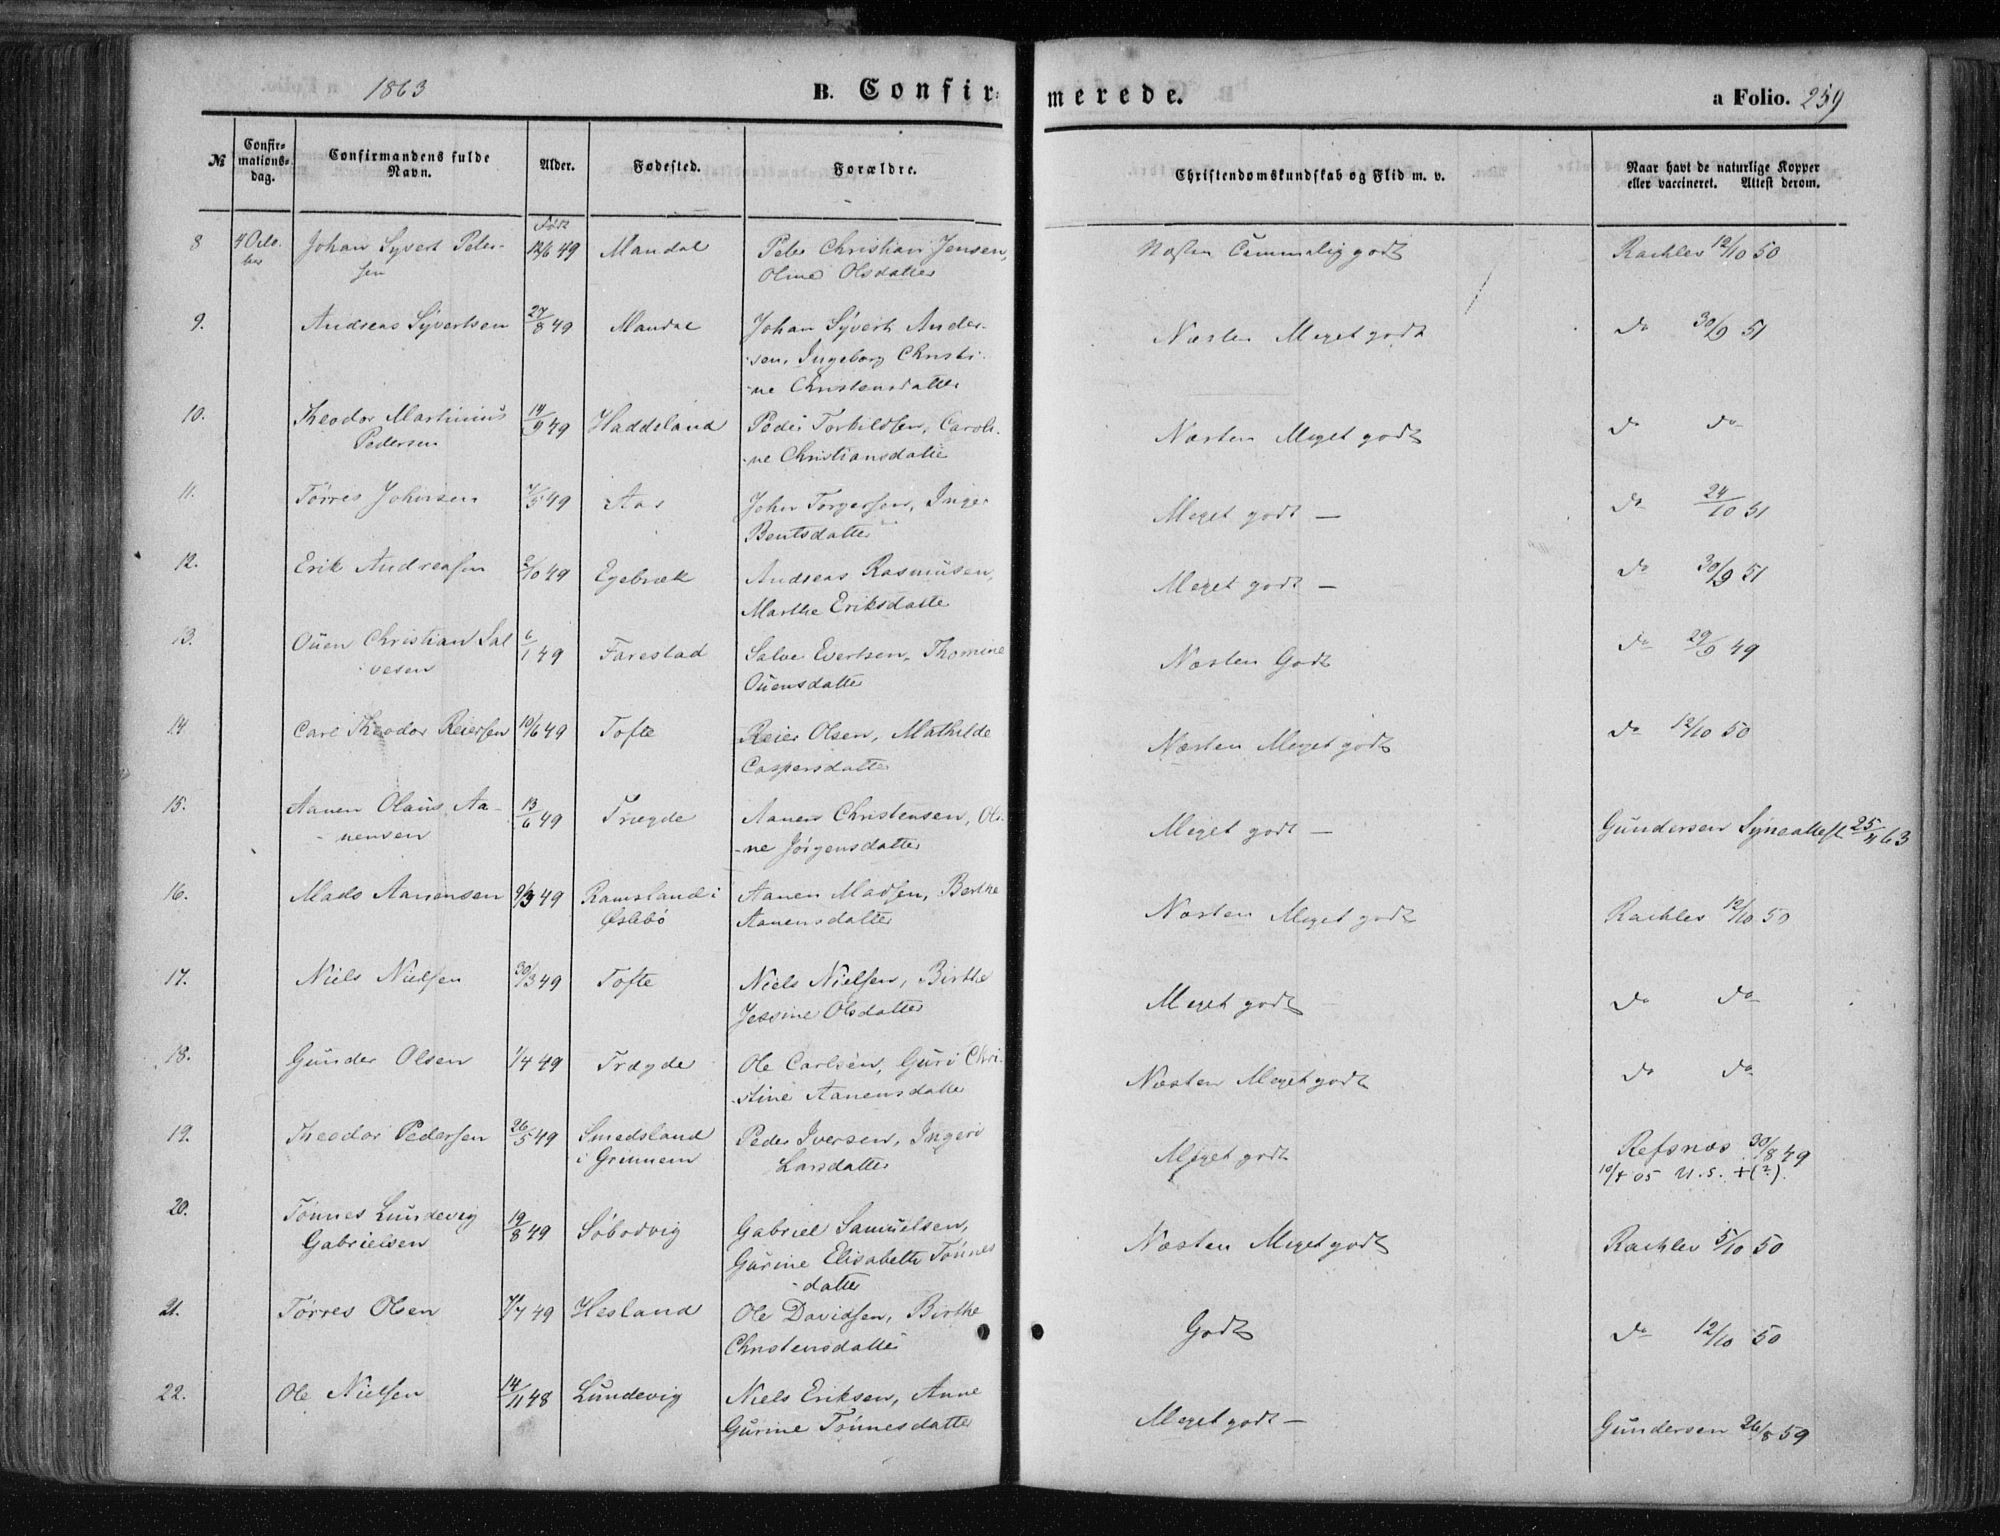 1863 B. Confir- merede. a Folio. 259
№ Confir-mations-dag. Confirmandens fulde Navn. Alder. Fødested. Forældre. Christendomskundskab og Flid m. v. Naar havt de naturlige Kopper eller vaccineret. Attest derom.
Født
8 4 Octo- Johan Syvert Peter- 12/6 49 Mandal Peter Christian Jensen, Næsten godt 12/10 50
ber sen Oline Olsdatter
9. Andreas Syvertsen 27/8 49 Mandal Johan Syvert Ander- Næsten Meget godt do 30/9 51
sen, Ingeborg Christi-
ne Christensdatter
10. Theodor Martinius 14/9 49 Haddeland Peder Torkildsen, Caroli- Næsten Meget godt do do
Pedersen ne Christiansdatter
11. Tørres Johnsen 7/5 49 Aas John Torgersen, Inger Meget godt — do 24/10 51
Bentsdatter
12. Erik Andreasen 2/10 49 Egebræk Andreas Rasmusen, Meget godt — do 30/9 51
Marthe Eriksdatter
13. Ouen Christian Sal 6/1 49 Farestad Salve Evertsen, Thomine Næsten Godt do 29/9 49
vesen Ouensdatter
14 Carl Theodor Reiersen 10/6 49 Tofte Reier Olsen, Mathilde Næsten Meget godt do 12/10 50
Caspersdatter
15. Aanen Olaus Aa- 13/6 49 Trægde Aanen Christensen, Oli- Meget godt — Gundersen Syneattest 25/4 63
nensen ne Jörgensdatter
16. Mads Aanensen 9/3 49 Ramsland i Aanen Madsen, Berthe Næsten Meget godt 12/10 50
Øslebö Aanensdatter
17. Niels Nielsen 30/3 49 Tofte Niels Nielsen, Birthe Meget godt do do
Jessine Olsdatter
18. Gunder Olsen 1/4 49 Trægde Ole Carlsen, Guri Chri- Næsten Meget godt do do
stine Aanensdatter
19. Theodor Pedersen 26/5 49 Smedsland Peder Iversen, Ingeri Meget godt Refsnæs 30/8 49
i Grennem Larsdatter 10/4 05 U.S. +(?).
20. Tönnes Lundevig 19/8 49 Söbodvig Gabriel Samuelsen, Næsten Meget godt 5/10 50
Gabrielsen Gurine Elisabeth Tönnes
datter
21. Tørres Olsen 7/7 49 Hesland Ole Davidsen, Birthe Godt do 12/10 50
Christensdatter
22. Ole Nielsen 14/11 48 Lundevig Niels Eriksen, Anne Meget godt — Gundersen 26/8 59
Gurine Tönnesdatter